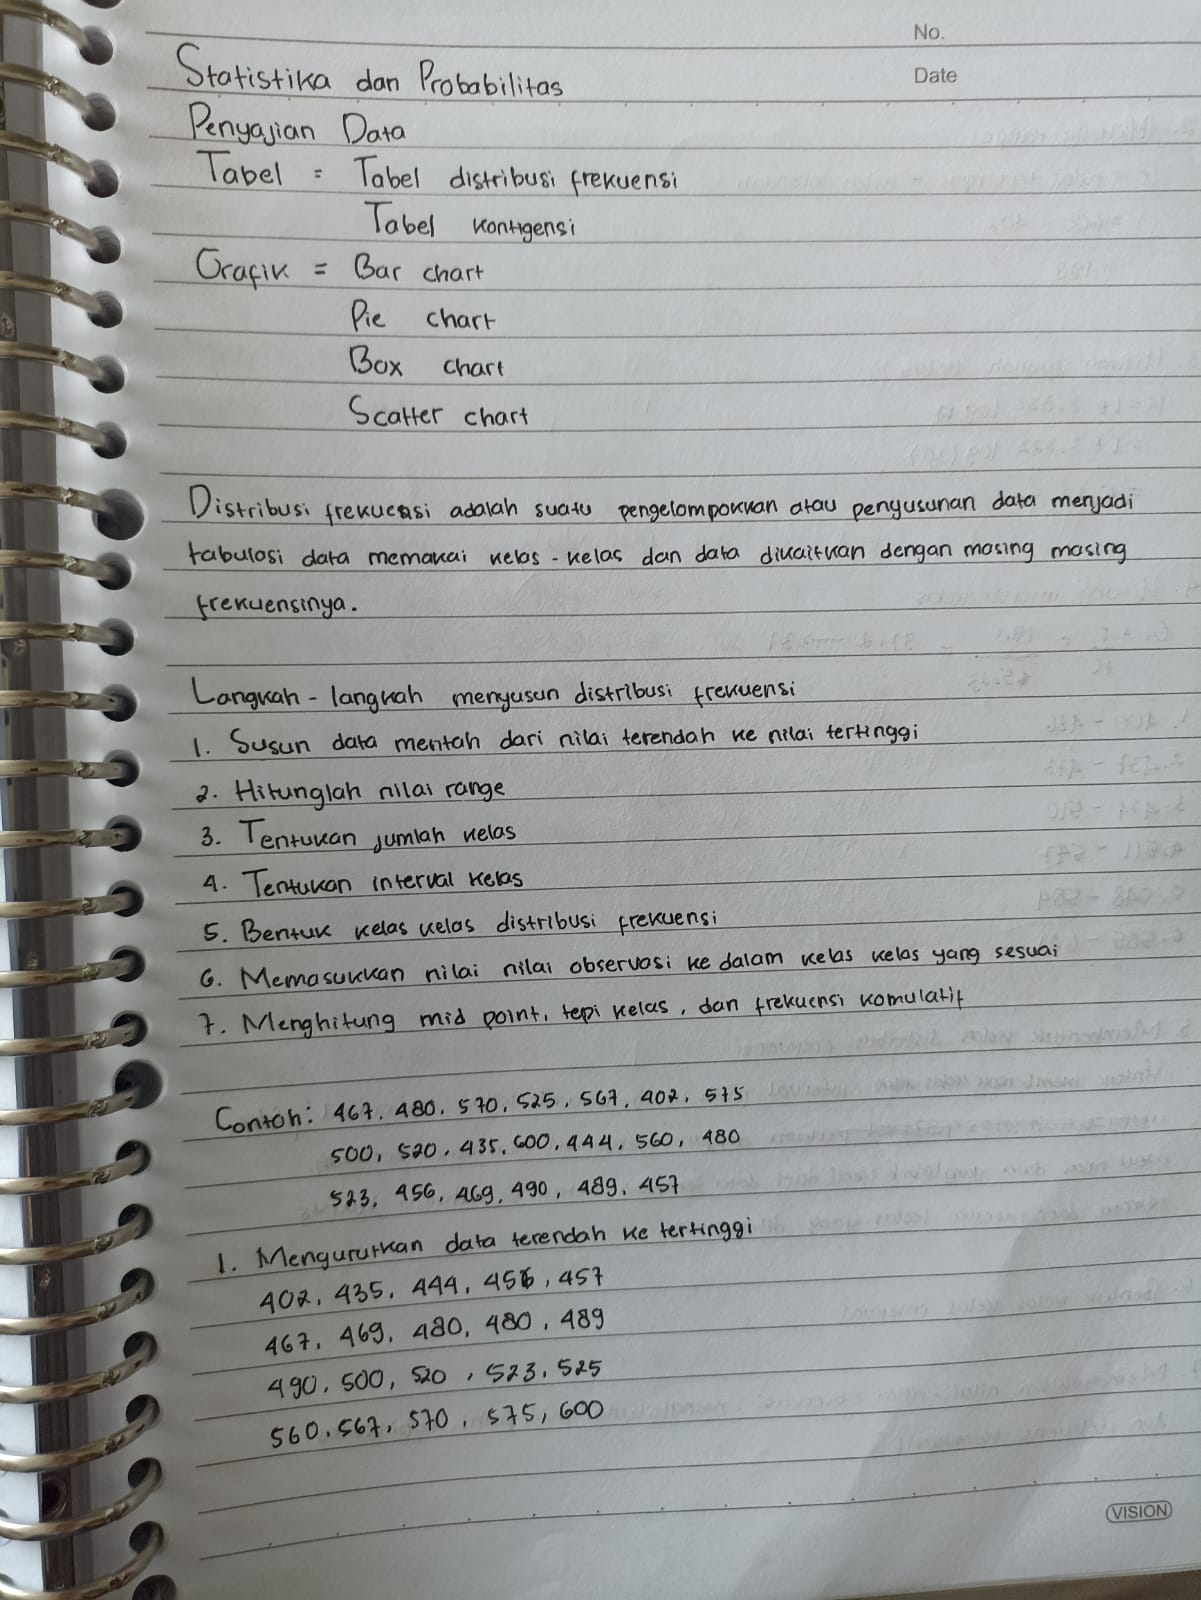 No.
Date
Statistika dan Probabilitas
Penyajian Data
Tabel = Tabel distribusi frekuensi
Tabel kontigensi
Grafik = Bar chart
Pie chart
Box chart
Scatter chart
Distribusi frekuensi adalah suatu pengelompokkan atau penyusunan data menjadi
tabulasi data memakai kelas - kelas dan data dikaitkan dengan masing masing
frekuensinya.
Langkah - langkah menyusun distribusi frekuensi
1. Susun data mentah dari nilai terendah ke nilai tertinggi
2. Hitunglah nilai range
3. Tentukan jumlah kelas
4. Tentukan interval kelas
5. Bentuk kelas kelas distribusi frekuensi
6. Memasukkan nilai nilai observasi ke dalam kelas kelas yang sesuai
7. Menghitung mid point, tepi kelas, dan frekuensi komulatif
Contoh: 467, 480, 570, 525, 567, 402, 575
500, 520, 435, 600, 444, 560, 480
523, 456, 469, 490, 489, 457
1. Mengurutkan data terendah ke tertinggi
402, 435, 444, 456, 457
467, 469, 480, 480, 489
490, 500, 520, 523, 525
560, 567, 570, 575, 600
VISION